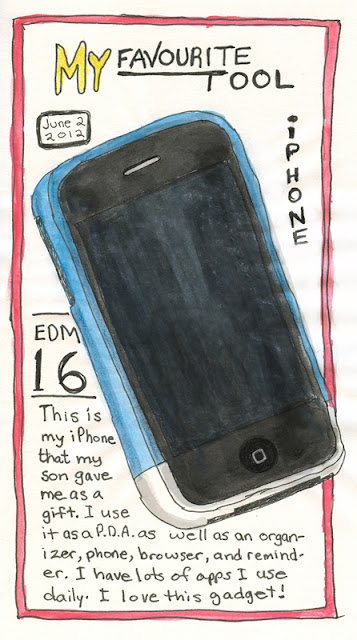 My FAVOURITE
TOOL
June 2
2012
iPHONE
EDM
16
This is
my iPhone
that my
son gave
me as a
gift. I use
it as a P.D.A. as well as an organ-
izer, phone, browser, and remind-
er. I have lots of apps I use
daily. I love this gadget!